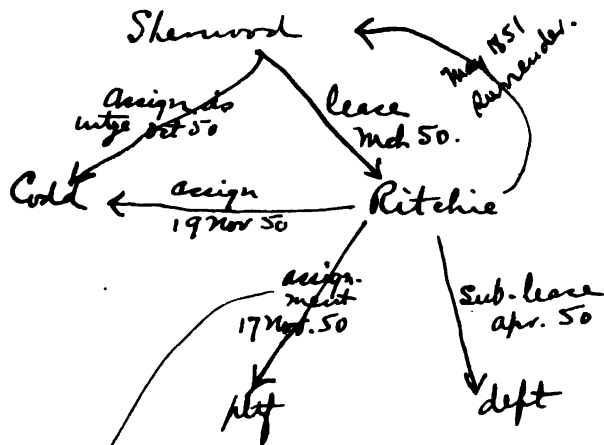 Sherwood
May 1851
Surrender.
assign. as
mtge Oct 50
lease
Mch 50.
Codd
assign
19 Nov 50
Ritchie
assign-
ment
17 Nov. 50
sub-lease
apr. 50
pltf
deft